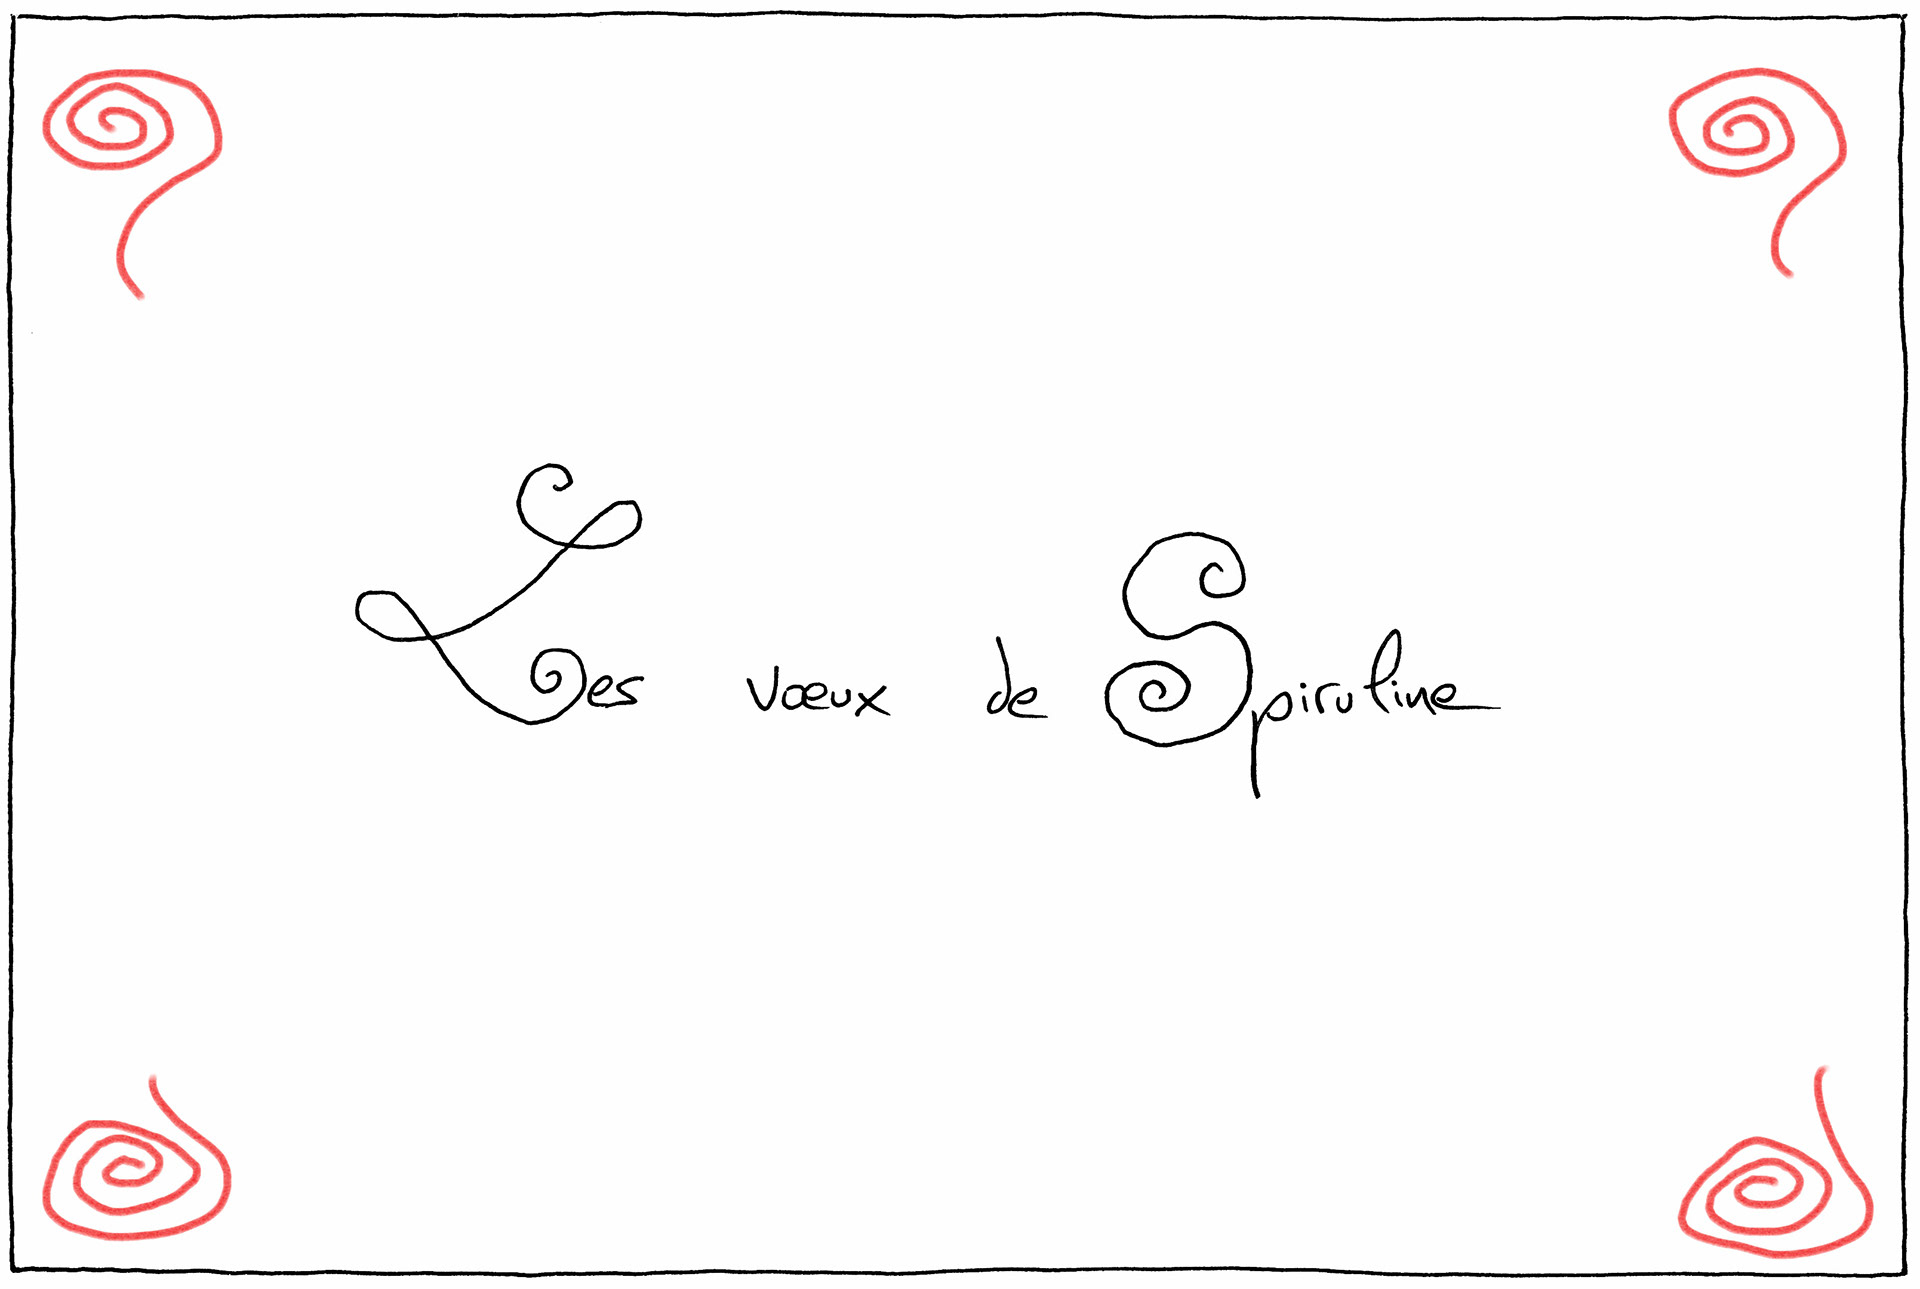 Les vœux de Spiruline